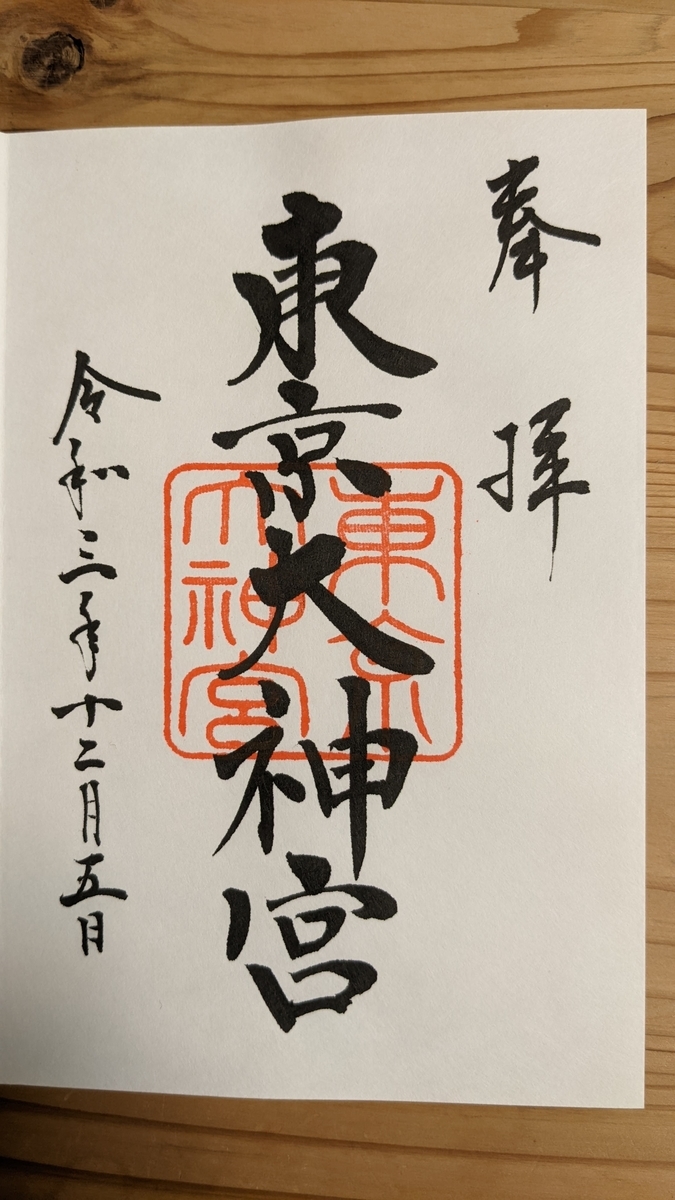 奉拝
東京大神宮
東京
大神宮
令和三年十二月五日